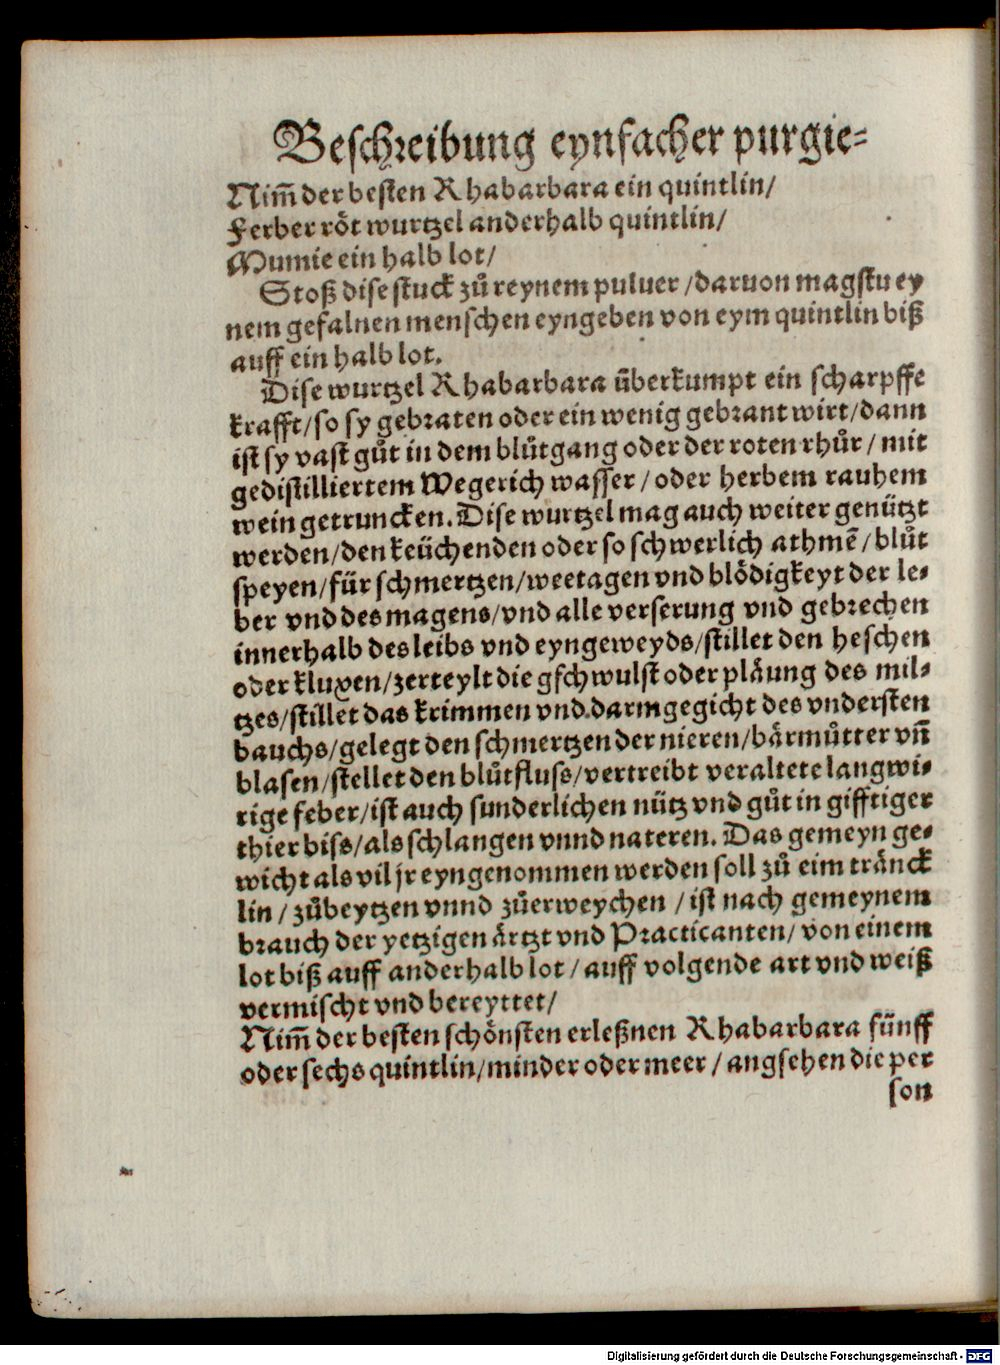 Beschreibung eynfacher purgie-
Nim̃ der besten Rhabarbara ein quintlin/
Ferber röt wurtzel anderhalb quintlin/
Mumie ein halb lot/
Stoß dise stuck zů reynem puluer /daruon magstu ey
nem gefalnen menschen eyngeben von eym quintlin biß
auff ein halb lot.
Dise wurtzel Rhabarbara überkumpt ein scharpffe
krafft/so sy gebraten oder ein wenig gebrant wirt/dann
ist sy vast gůt in dem blůtgang oder der roten rhůr/ mit
gedistilliertem Wegerich wasser / oder herbem rauhem
wein getruncken. Dise wurtzel mag auch weiter genützt
werden/den keüchenden oder so schwerlich athmẽ/blůt
speyen/für schmertzen/weetagen vnd blödigkeyt der le-
ber vnd des magens/vnd alle verserung vnd gebrechen
innerhalb des leibs vnd eyngeweyds/stillet den heschen
oder kluxen/zerteylt die gschwulst oder pläung des mil-
tzes/stillet das krimmen vnd darmgegicht des vndersten
bauchs/gelegt den schmertzen der nieren/bärmůtter vñ
blasen/stellet den blůtfluss/vertreibt veraltete langwi-
rige feber/ist auch sunderlichen nütz vnd gůt in gifftiger
thier biss/als schlangen vnnd nateren. Das gemeyn ge-
wicht als vil jr eyngenommen werden soll zů eim tränck
lin / zůbeytzen vnnd zůerweychen /ist nach gemeynem
brauch der yetzigen ärtzt vnd Practicanten/ von einem
lot biß auff anderhalb lot / auff volgende art vnd weiß
vermischt vnd bereyttet/
Nim̃ der besten schönsten erleßnen Rhabarbara fünff
oder sechs quintlin/minder oder meer / angsehen die per
son
Digitalisierung gefördert durch die Deutsche Forschungsgemeinschaft - DFG